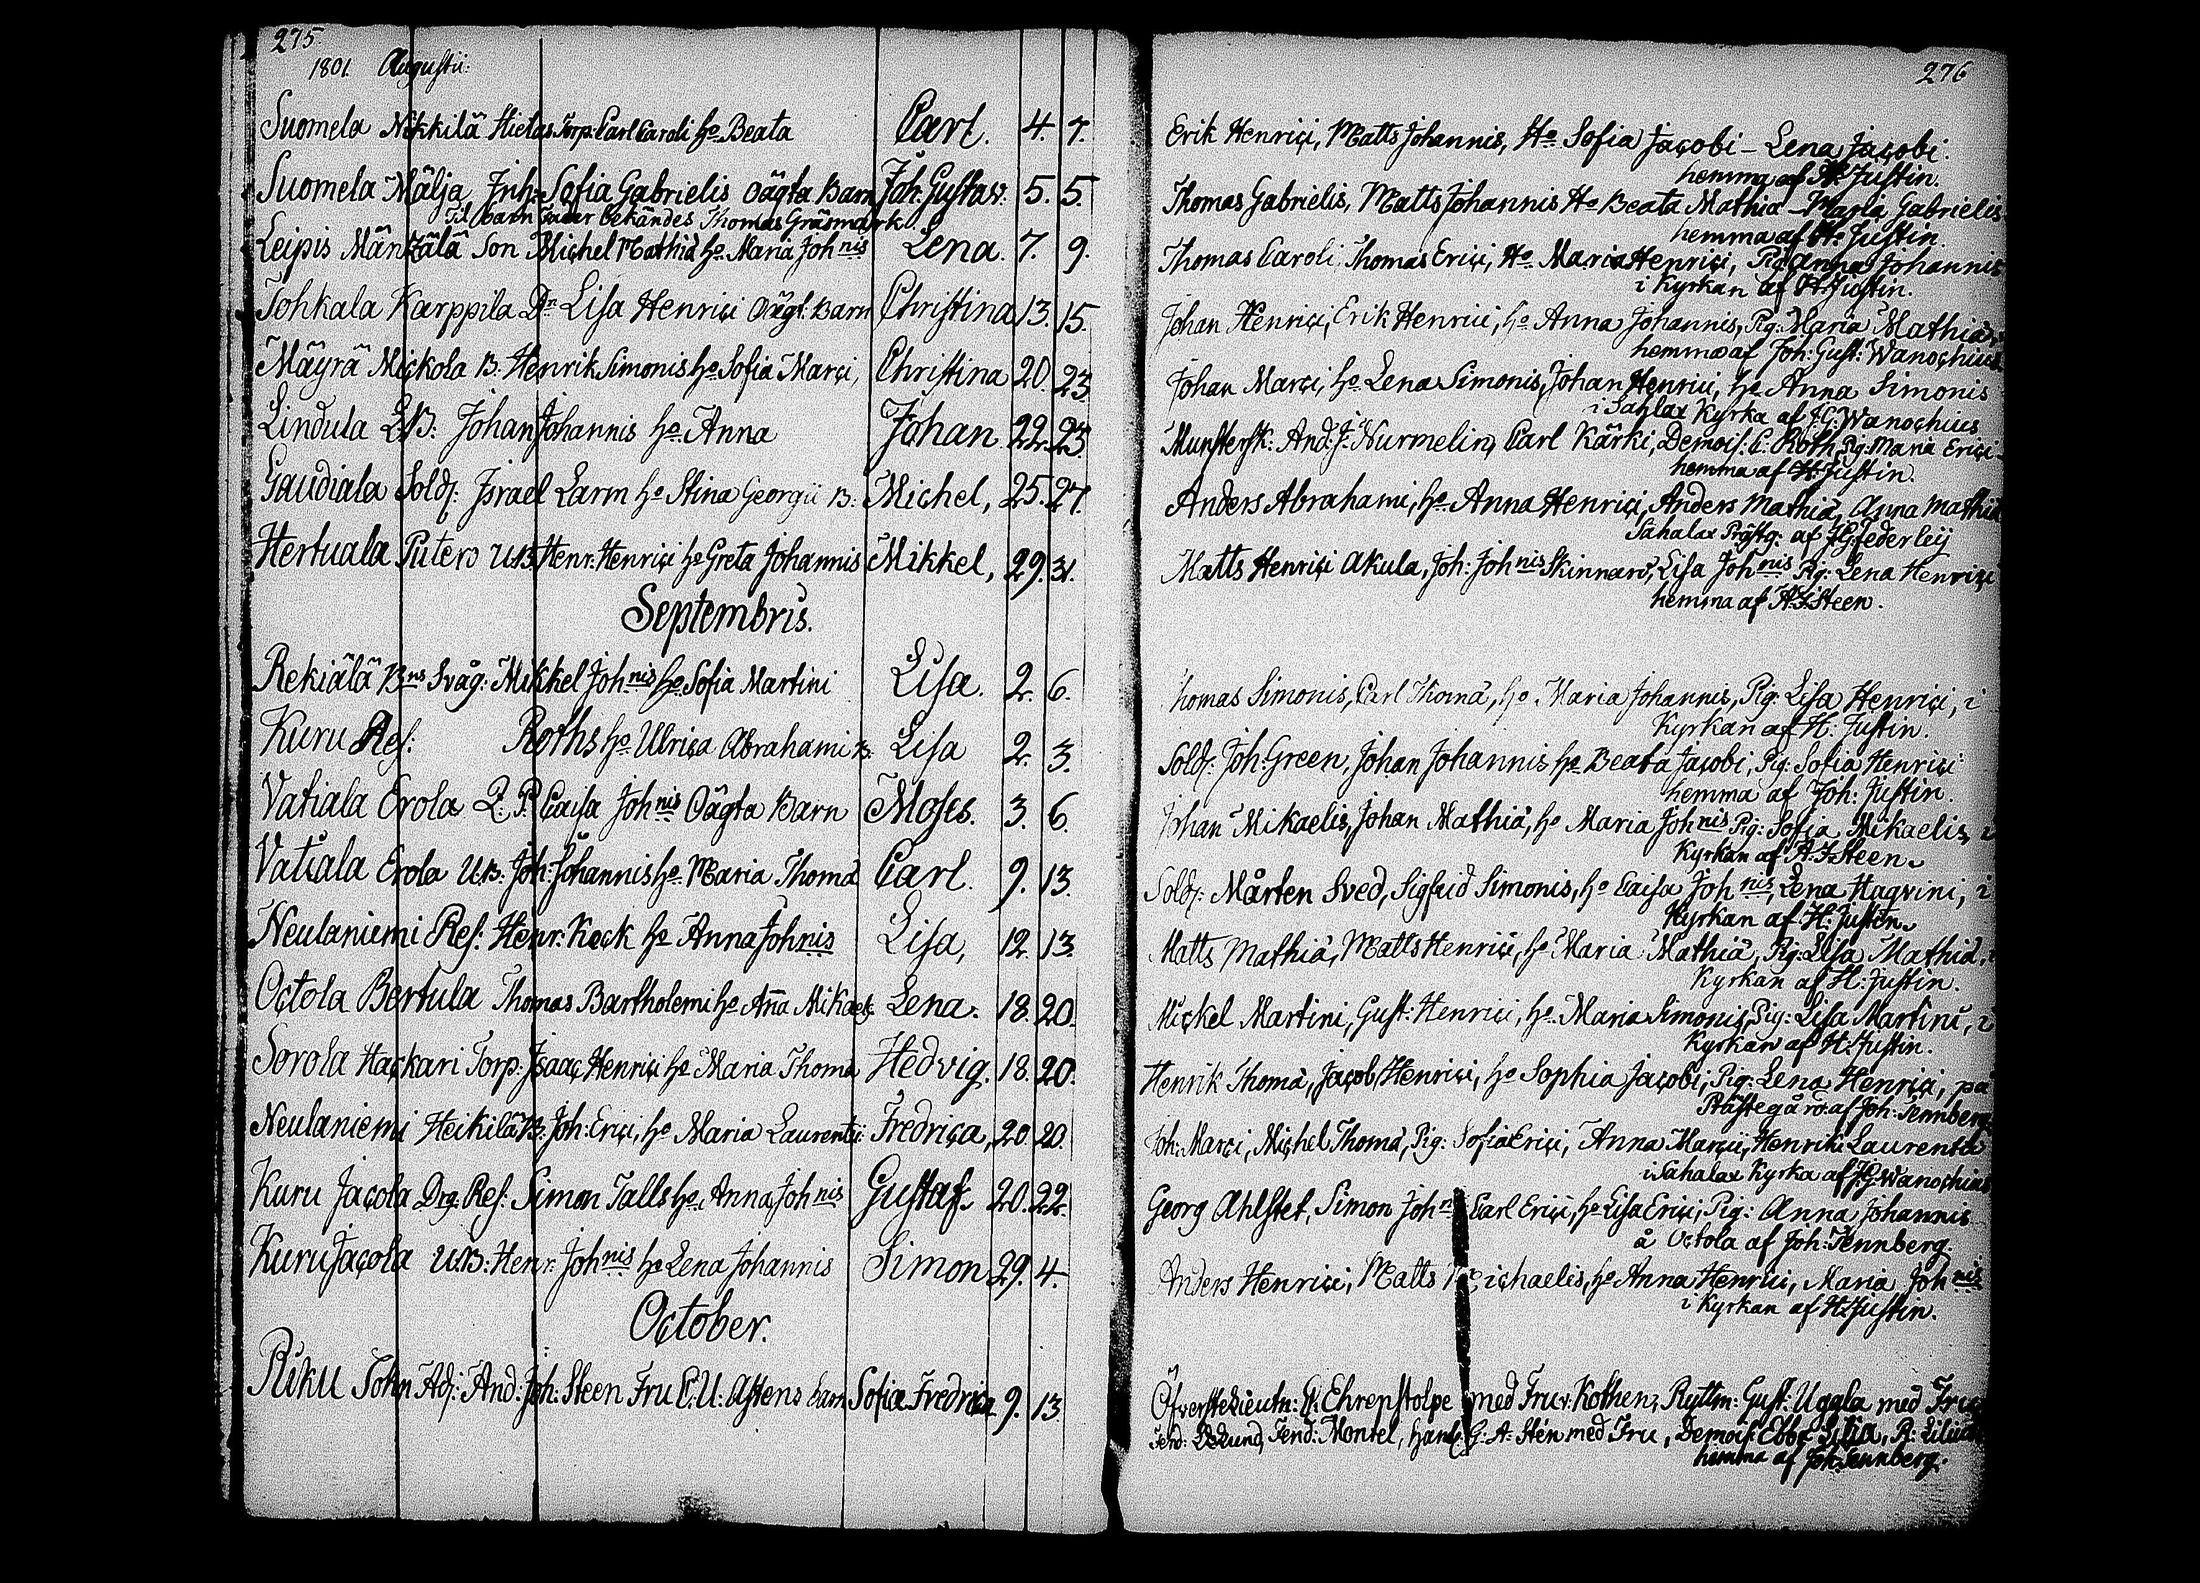 275.
1801. Augustii:
Suomela Nikkilä Hietas Torp: Carl Caroli ho Beata Carl. 4. 7.
Suomela Mälja Inh: Sofia Gabrielis Oägta Barn Joh: Gustav: 5. 5.
Til barn fader bekändes Thomas Gräsmark.
Leipis Son Michel Mathiä ho Maria Johnis Lena. 7. 9.
Tohkala Karppila Dr Lisa Henrici Oägt: Barn Christina 13. 15.
Mäyrä Mickola B: Henrik Simonis ho Sofia Marci, Christina 20. 23
Lindula Johan Johannis ho Anna Johan 22. 23.
Gaudiala Sold: Israel Larm ho Stina Georgii B: Michel, 25. 27.
Hertuala Puters UB: Henr: Henrici ho Greta Johannis Mikkel, 29. 31.
Septembris.
Rekiälä Bns Svåg: Mikkel Johnis ho Sofia Martini Lisa. 2. 6.
Kuru Res: Roths ho Ulrica Abrahami B: Lisa 2. 3.
Vatiala Erola Q. P. Caisa Johnis Oägta Barn Moses. 3. 6.
Vatiala Erola UB: Joh: Johannis ho Maria Thomä Carl. 9. 13.
Neulaniemi Res: Henr: Keck ho Anna Johnis Lisa, 12. 13.
Octola Bertula Thomas Bartholemi ho Anna Mikaels: Lena. 18. 20.
Sorola Hackari Torp: Isaac Henrici ho Maria Thomä Hedvig. 18. 20.
Neulaniemi Heikilä B: Joh: Erici, ho Maria Laurentii: Fredrica, 20 20.
Kuru Jacola Drg. Res: Simon Talls ho Anna Johnis Gustaf. 20. 22.
Kuru Jacola UB: Henr: Johnis ho Lena Johannis Simon 29. 4.
October.
Riku Adj: And: Joh: Steen Fru C. U: Astens barn Sofia Fredrica 9. 13
276
Erik Henrici, Matts Johannis, Ho Sofia Jacobi – Lena Jacobi.
hemma af H. Justin.
Thomas Gabrielis, Matts Johannis Ho Beata Mathiä – Maria Gabrielis
hemma af H. Justin.
Thomas Caroli, Thomas Erici, Ho Maria Henrici, Pig: Anna Johannis
i Kyrkan af H. Justin.
Johan Henrici, Erik Henrici, ho Anna Johannis, Pig: Maria Mathiä
hemma af Joh: Gust: Wanochius
Johan Marci, ho Lena Simonis, Johan Henrici, ho Anna Simonis
i Sahlax Kyrka af J. G: Wanochius
Munsterk: And: J: Nurmelin, Carl Kärki, Demois: C. Roth, Pig: Maria Erici
hemma af H: Justin.
Anders Abrahami, ho Anna Henrici, Anders Mathiä, Anna Mathiä
Sahalax Prästg: af J. G. Federleij
Matts Henrici Akula, Joh: Johnis Skinnare, Lisa Johnis Pig: Lena Henrici
hemma af A. J. Steen.
Thomas Simonis, Carl Thomä, ho Maria Johannis, Pig: Lisa Henrici, i
Kyrkan af H: Justin.
Sold: Joh: Green, Johan Johannis ho Beata Jacobi, Pig: Sofia Henrici
hemma af Joh: Justin.
Johan Mikaelis, Johan Mathiä, ho Maria Johnis Pig: Sofia Mikaelis, i
Kyrkan af A. J. Steen.
Sold: Mårten Sved, Sigfrid Simonis, ho Caisa Johnis, Lena Haqvini, i
Kyrkan af H: Justin.
Matts Mathiä, Matts Henrici, ho Maria Mathiä, Pig: Lisa Mathiä, i
Kyrkan af H: Justin.
Mickel Martini, Gust: Henrici, ho Maria Simonis, Pig: Lisa Martini, i
Kyrkan af H: Justin.
Henrik Thomä, Jacob Henrici, ho Sophia Jacobi, Pig: Lena Henrici, på
Prästegård af Joh: Tennberg
Joh: Marci, Michel Thomä, Pig: Sofia Erici, Anna Marcii, Henrik Laurentii
i Sahalax Kyrka af J. G. Wanochius
Georg Ahlstet, Simon Johnis Carl Erici, ho Lisa Erici, Pig: Anna Johannis
å Octola af Joh: Tennberg.
Anders Henrici, Matts Michaelis, ho Anna Henrici, Maria Johnis
i Kyrkan af H. Justin.
Öfverstelieutn: Ehrenstolpe med Fru v: Kothen, Ryttm: Gust: Uggla med Fru
Fend: Fend: Montel, G: A: Sten med Fru, Demois: Ebba Lilia,
hemma af Joh: Tennberg.